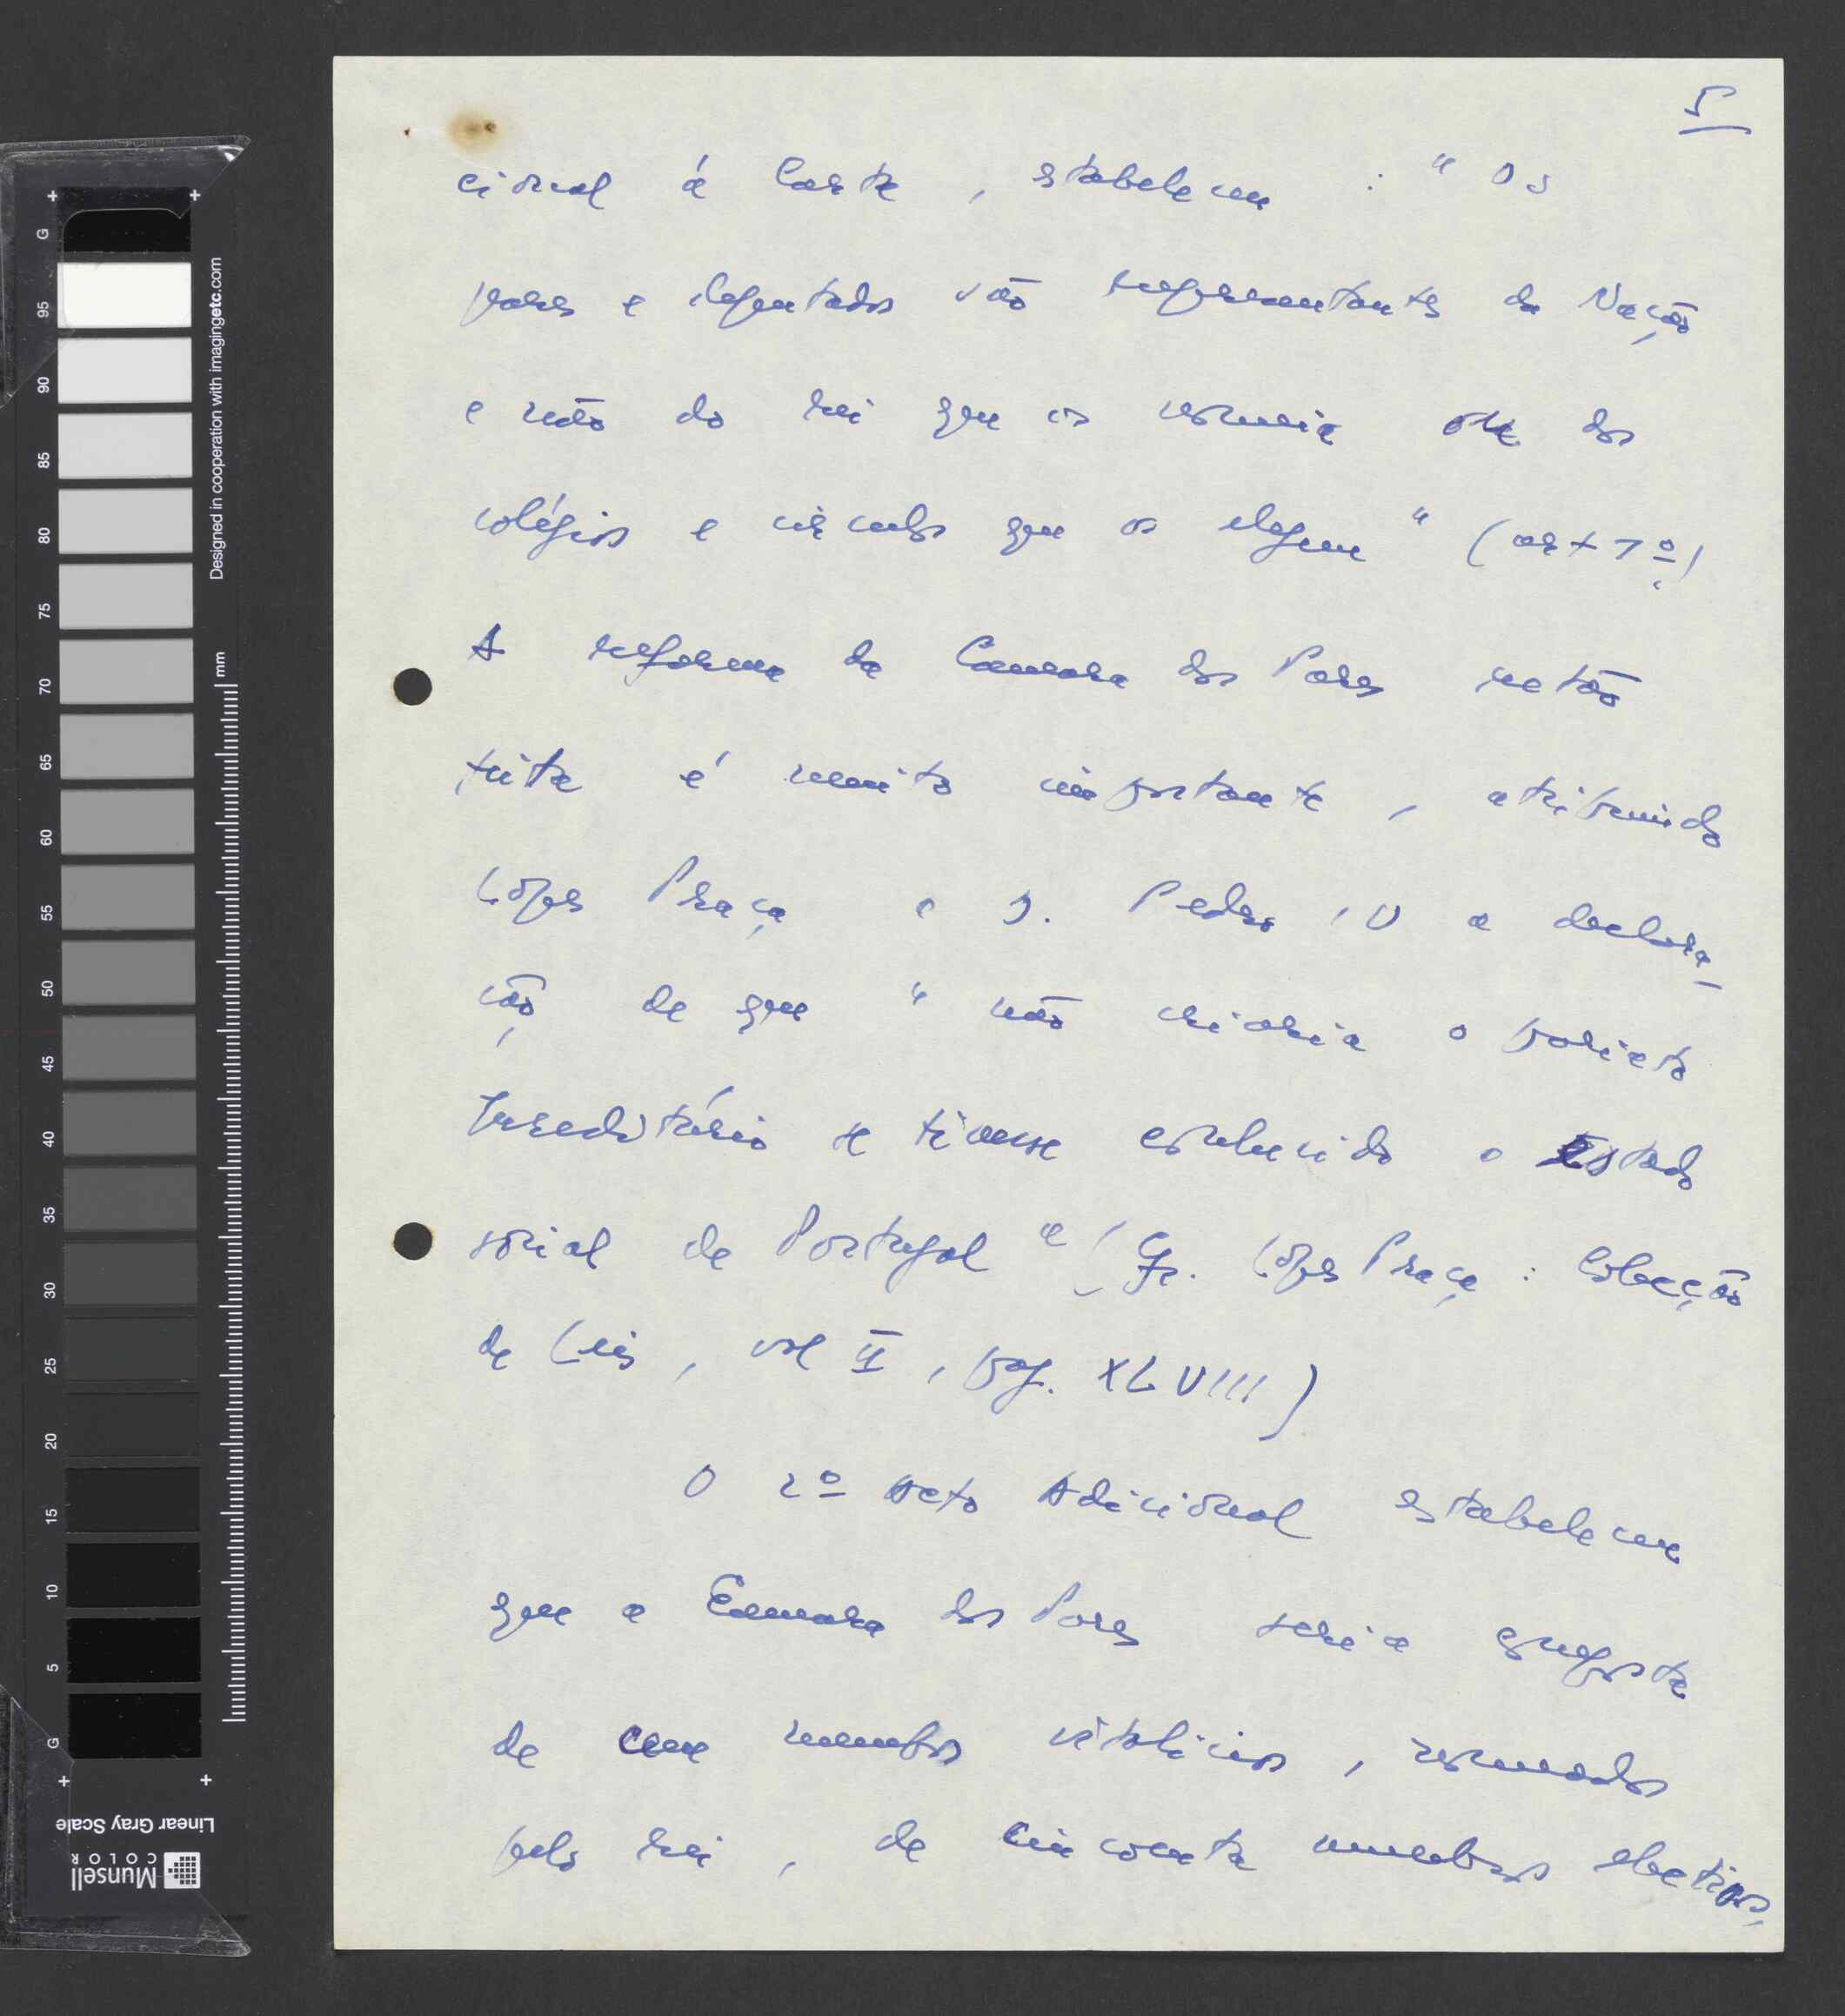 5
cional á Carta, estabeleceu: "Os
pares e deputados são representantes da Nação
e não do rei que os nomeia ou dos
colégios e circulos que os elegem" (art 1º)
A reforma da Camara dos Pares então
feita é muito importante, atribuindo
Lopes Praça a D. Pedro IV a declara-
ção de que "não criaria o pariato
hereditário se tivesse conhecido o Estado
social de Portugal" (Cfr. Lopes Praça: Colecção
de Leis, vol II, pag. XLVIII)
O 2º Acto Adicional estabeleceu
que a Camara dos Pares seria composta
de cem membros vitalicios, nomeados
pelo rei, de cincoenta membros electivos,
G
95
90
85
80
75
70
65
60
55
50
45
40
35
30
25
20
15
10
5
G
mm
Designed in cooperation with imagingetc.com
Linear Gray Scale
Munsell
COLOR